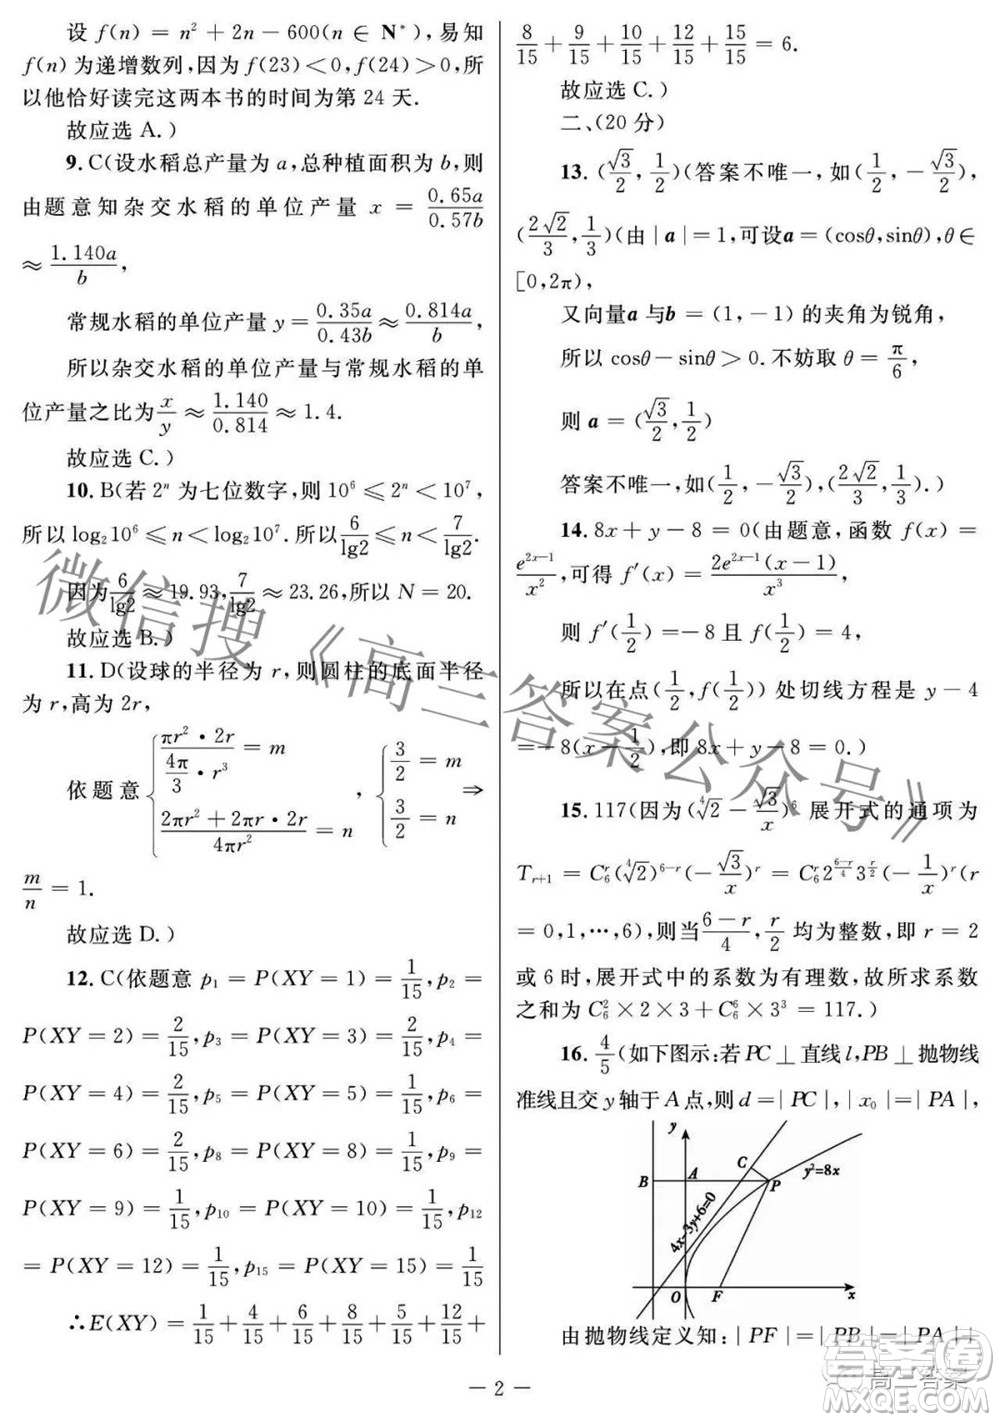 设 f(n) = n² + 2n − 600(n ∈ N*), 易知
f(n)为递增数列,因为 f(23)<0, f(24)>0,所
以他恰好读完这两本书的时间为第 24 天.
故应选 A.)
9. C(设水稻总产量为 a,总种植面积为 b,则
由题意知杂交水稻的单位产量 x = 0.65a/0.57b
≈ 1.140a/b,
常规水稻的单位产量 y = 0.35a/0.43b ≈ 0.814a/b,
所以杂交水稻的单位产量与常规水稻的单
位产量之比为 x/y ≈ 1.140/0.814 ≈ 1.4.
故应选 C.)
10. B(若 2ⁿ 为七位数字,则 10⁶ ⩽ 2ⁿ < 10⁷,
所以 log₂10⁶ ⩽ n < log₂10⁷. 所以 6/lg2 ⩽ n < 7/lg2.
因为 6/lg2 ≈ 19.93, 7/lg2 ≈ 23.26,所以 N = 20.
故应选 B.)
11. D(设球的半径为 r,则圆柱的底面半径
为 r,高为 2r,
依题意 { πr²·2r / (4π/3 · r³) = m, (2πr² + 2πr·2r)/4πr² = n , { 3/2 = m, 3/2 = n ⇒
m/n = 1.
故应选 D.)
12. C(依题意 p₁ = P(XY = 1) = 1/15, p₂ =
P(XY = 2) = 2/15, p₃ = P(XY = 3) = 2/15, p₄ =
P(XY = 4) = 2/15, p₅ = P(XY = 5) = 1/15, p₆ =
P(XY = 6) = 2/15, p₈ = P(XY = 8) = 1/15, p₉ =
P(XY = 9) = 1/15, p₁₀ = P(XY = 10) = 1/15, p₁₂
= P(XY = 12) = 1/15, p₁₅ = P(XY = 15) = 1/15
∴E(XY) = 1/15 + 4/15 + 6/15 + 8/15 + 5/15 + 12/15 +
8/15 + 9/15 + 10/15 + 12/15 + 15/15 = 6.
故应选 C.)
二、(20 分)
13. (√3/2, 1/2)(答案不唯一,如(1/2, −√3/2),
(2√2/3, 1/3)(由 |a| = 1,可设a = (cosθ,sinθ),θ ∈
[0,2π),
又向量a 与b = (1,−1) 的夹角为锐角,
所以 cosθ − sinθ > 0. 不妨取 θ = π/6,
则 a = (√3/2, 1/2)
答案不唯一,如(1/2, −√3/2),(2√2/3, 1/3).)
14. 8x + y − 8 = 0(由题意,函数 f(x) =
e²ˣ⁻¹/x²,可得 f′(x) = 2e²ˣ⁻¹(x−1)/x³,
则 f′(1/2) = −8 且 f(1/2) = 4,
所以在点(1/2, f(1/2)) 处切线方程是 y − 4
= −8(x − 1/2),即 8x + y − 8 = 0.)
15. 117(因为 (⁴√2 − √3/x)⁶ 展开式的通项为
Tᵣ₊₁ = C₆ʳ(⁴√2)⁶⁻ʳ(−√3/x)ʳ = C₆ʳ2^((6−r)/4)3^(r/2)(−1/x)ʳ(r
= 0,1,…,6),则当 (6−r)/4, r/2 均为整数,即 r = 2
或 6 时,展开式中的系数为有理数,故所求系数
之和为 C₆² × 2 × 3 + C₆⁶ × 3³ = 117.)
16. 4/5(如下图示:若 PC ⊥ 直线 l,PB ⊥ 抛物线
准线且交 y 轴于 A 点,则 d = |PC|, |x₀| = |PA|,
y
C
B
A
P
y²=8x
4x−3y+6=0
O
F
x
由抛物线定义知: |PF| = |PB| = |PA| +
— 2 —
微信搜《高三答案公众号》
答案圈
高三答案